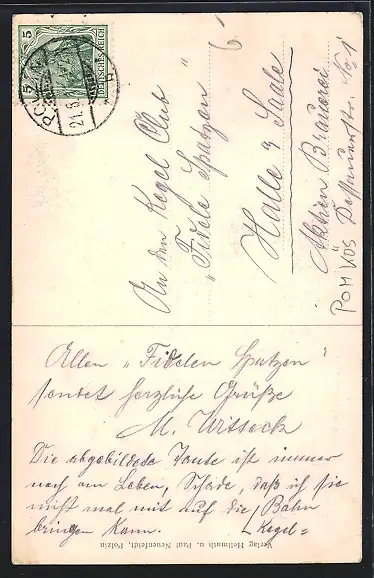 5 5
DEUTSCHES REICH
21.8.
An den Kegel Club
"Fidele Spatzen"
Halle a Saale
Aktien Brauerei
Dessauerstr. No 1
POMMERN
6.
Allen "Fidelen Spatzen"
sendet herzliche Grüße
M. Witteck
Die abgebildede Tante ist immer
noch am Leben, Schade, daß ich sie
nicht mal mit auf die Bahn
bringen kann. Kegel=
Verlag Hellmuth u. Paul Neuenfeldt, Polzin